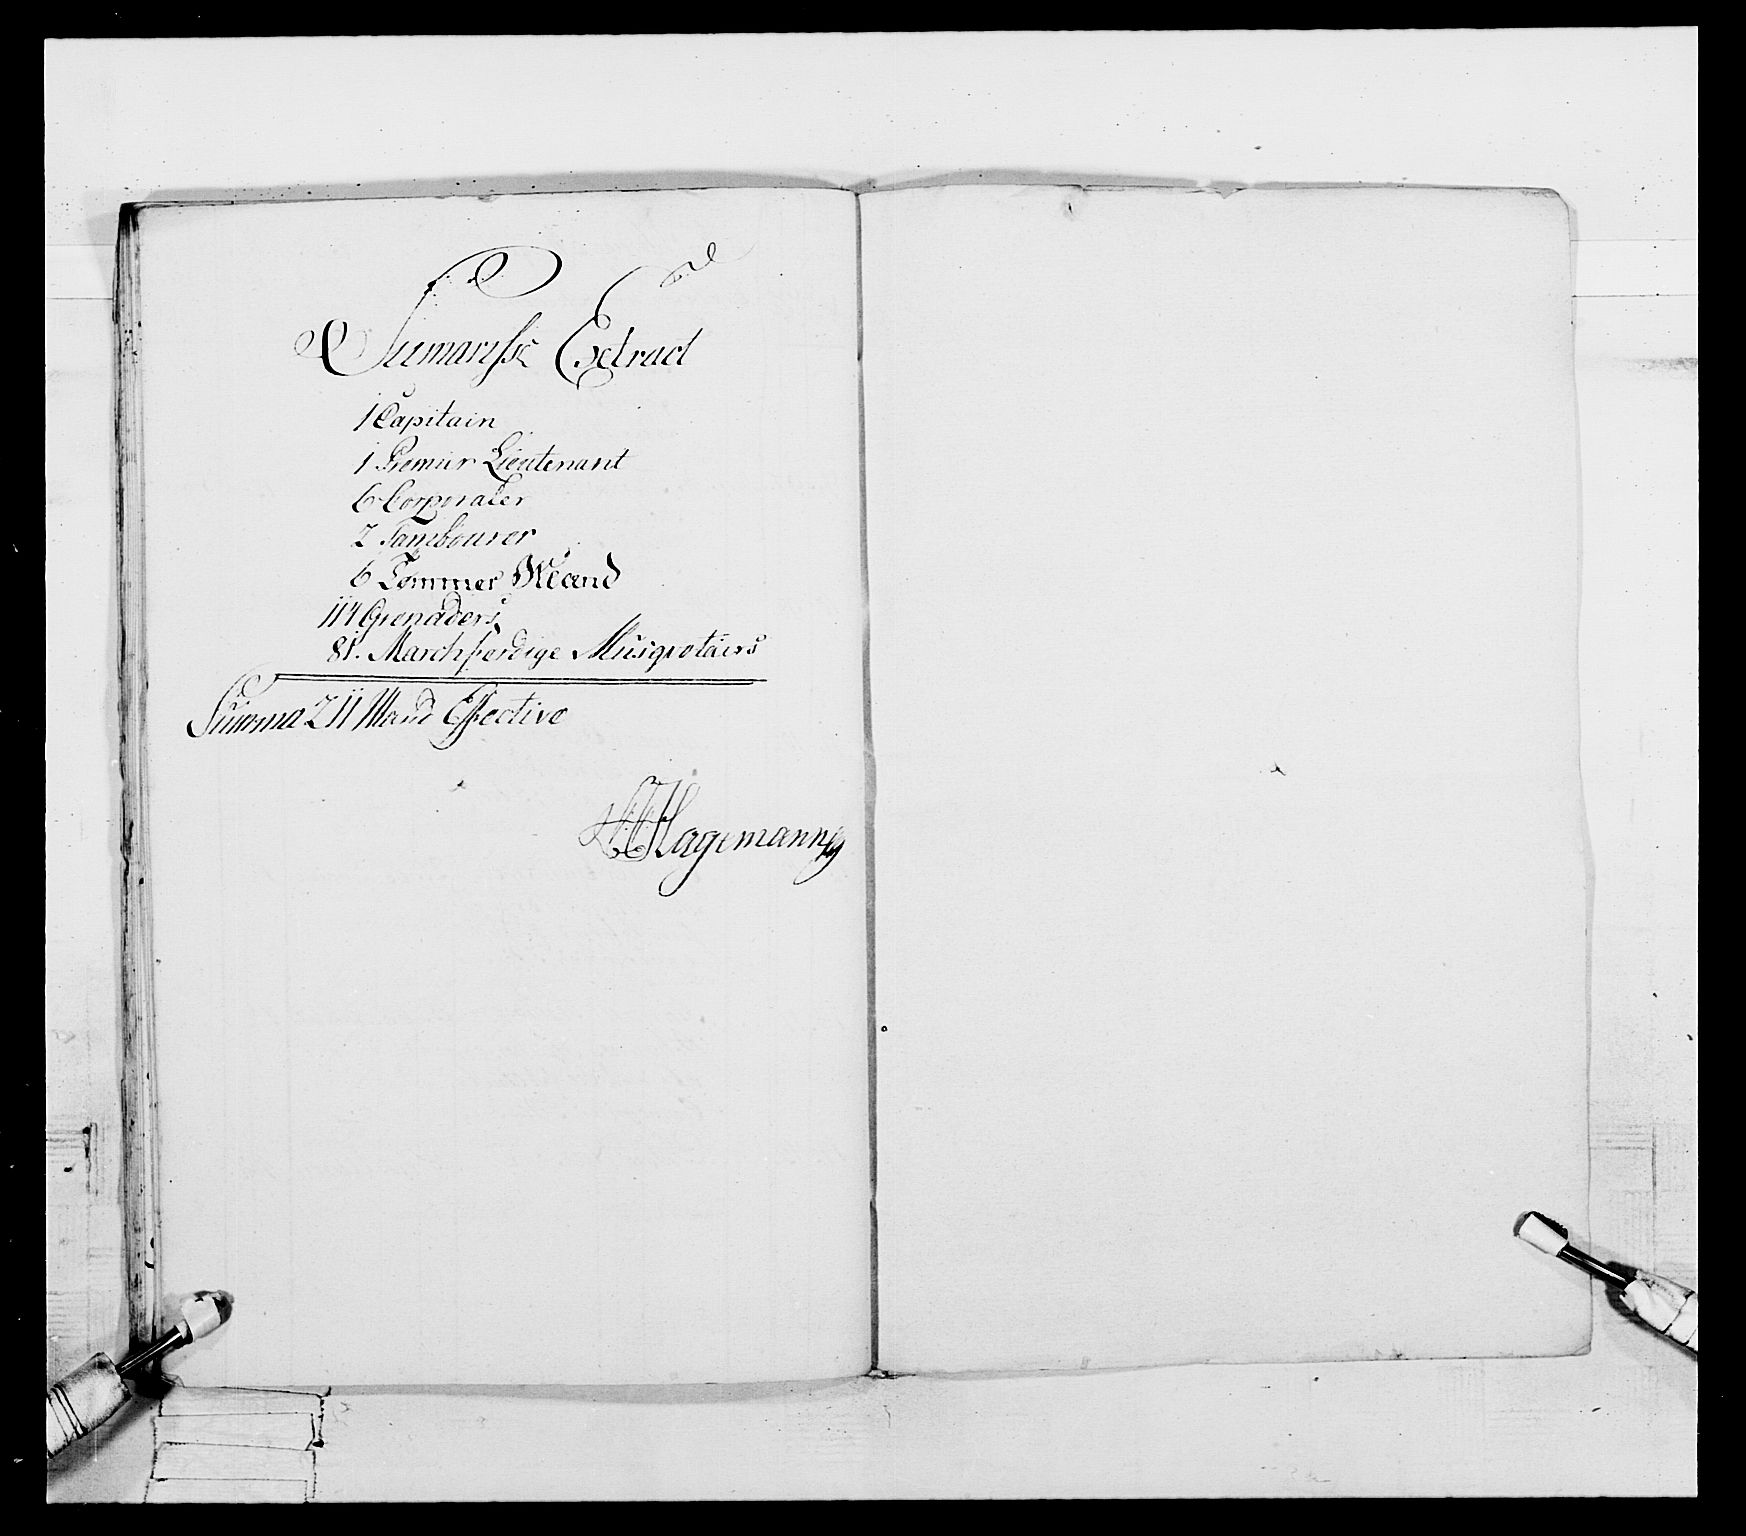 Sumarisk Extract
1 Capitain
1 Premier Lieutenant
6 Corporaler
2 Tambourer
6 Tömmer Mænd
114 Grenaders
81. Marchfærdige Musqvotairs
Summa 211 Mand Effective
Hagemann